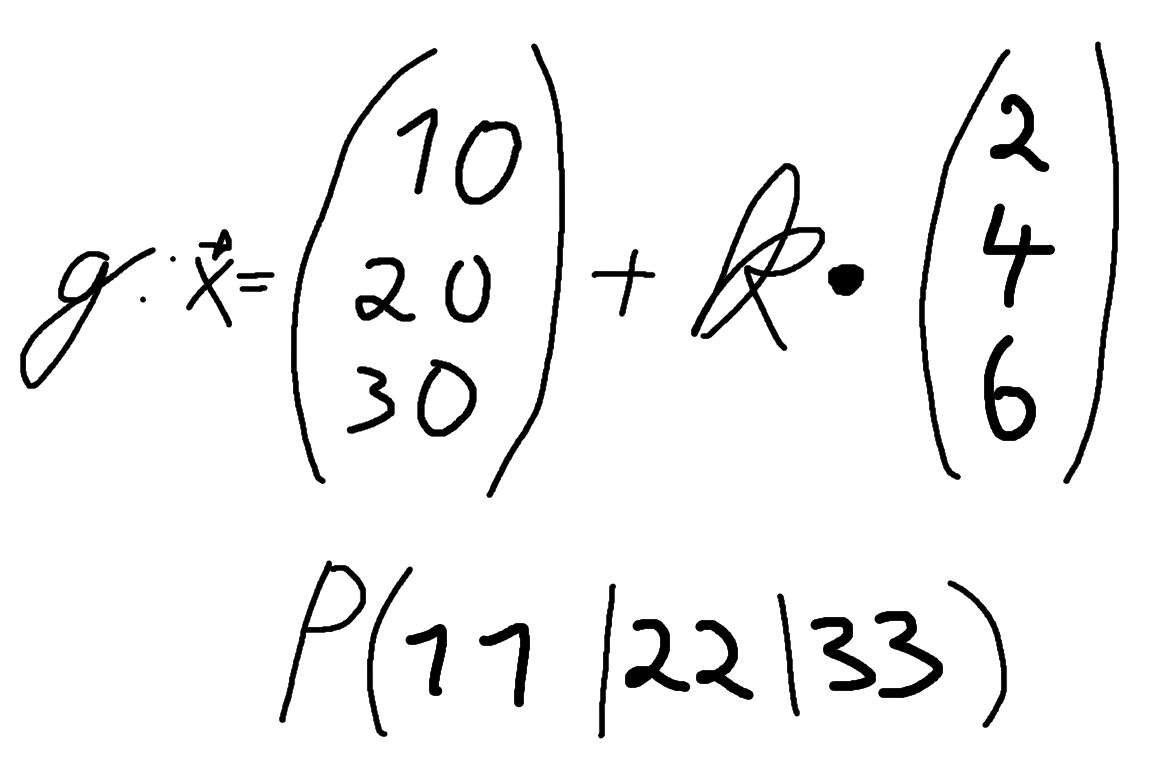 g: x⃗ = (10 20 30) + k • (2 4 6)
P(11|22|33)